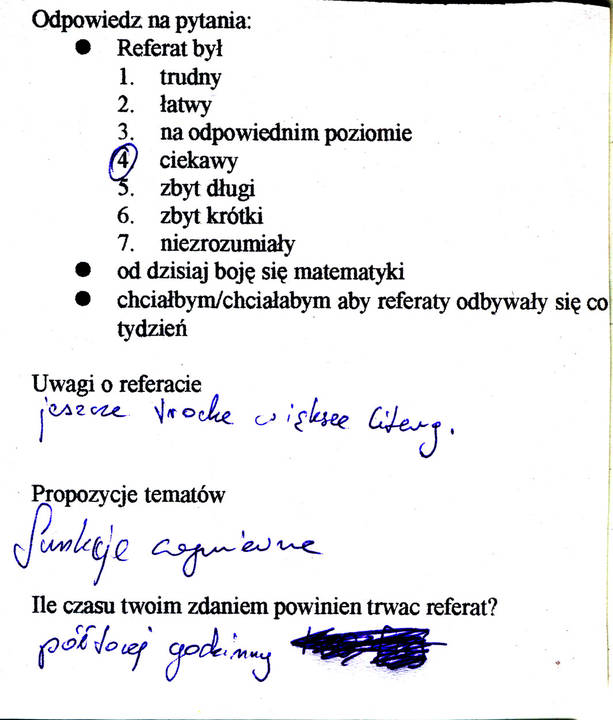 Odpowiedz na pytania:
● Referat był
1. trudny
2. łatwy
3. na odpowiednim poziomie
4. ciekawy
5. zbyt długi
6. zbyt krótki
7. niezrozumiały
● od dzisiaj boję się matematyki
● chciałbym/chciałabym aby referaty odbywały się co
tydzień
Uwagi o referacie
jeszcze troche większe literą.
Propozycje tematów
funkcje
Ile czasu twoim zdaniem powinien trwac referat?
półtorej godzinny